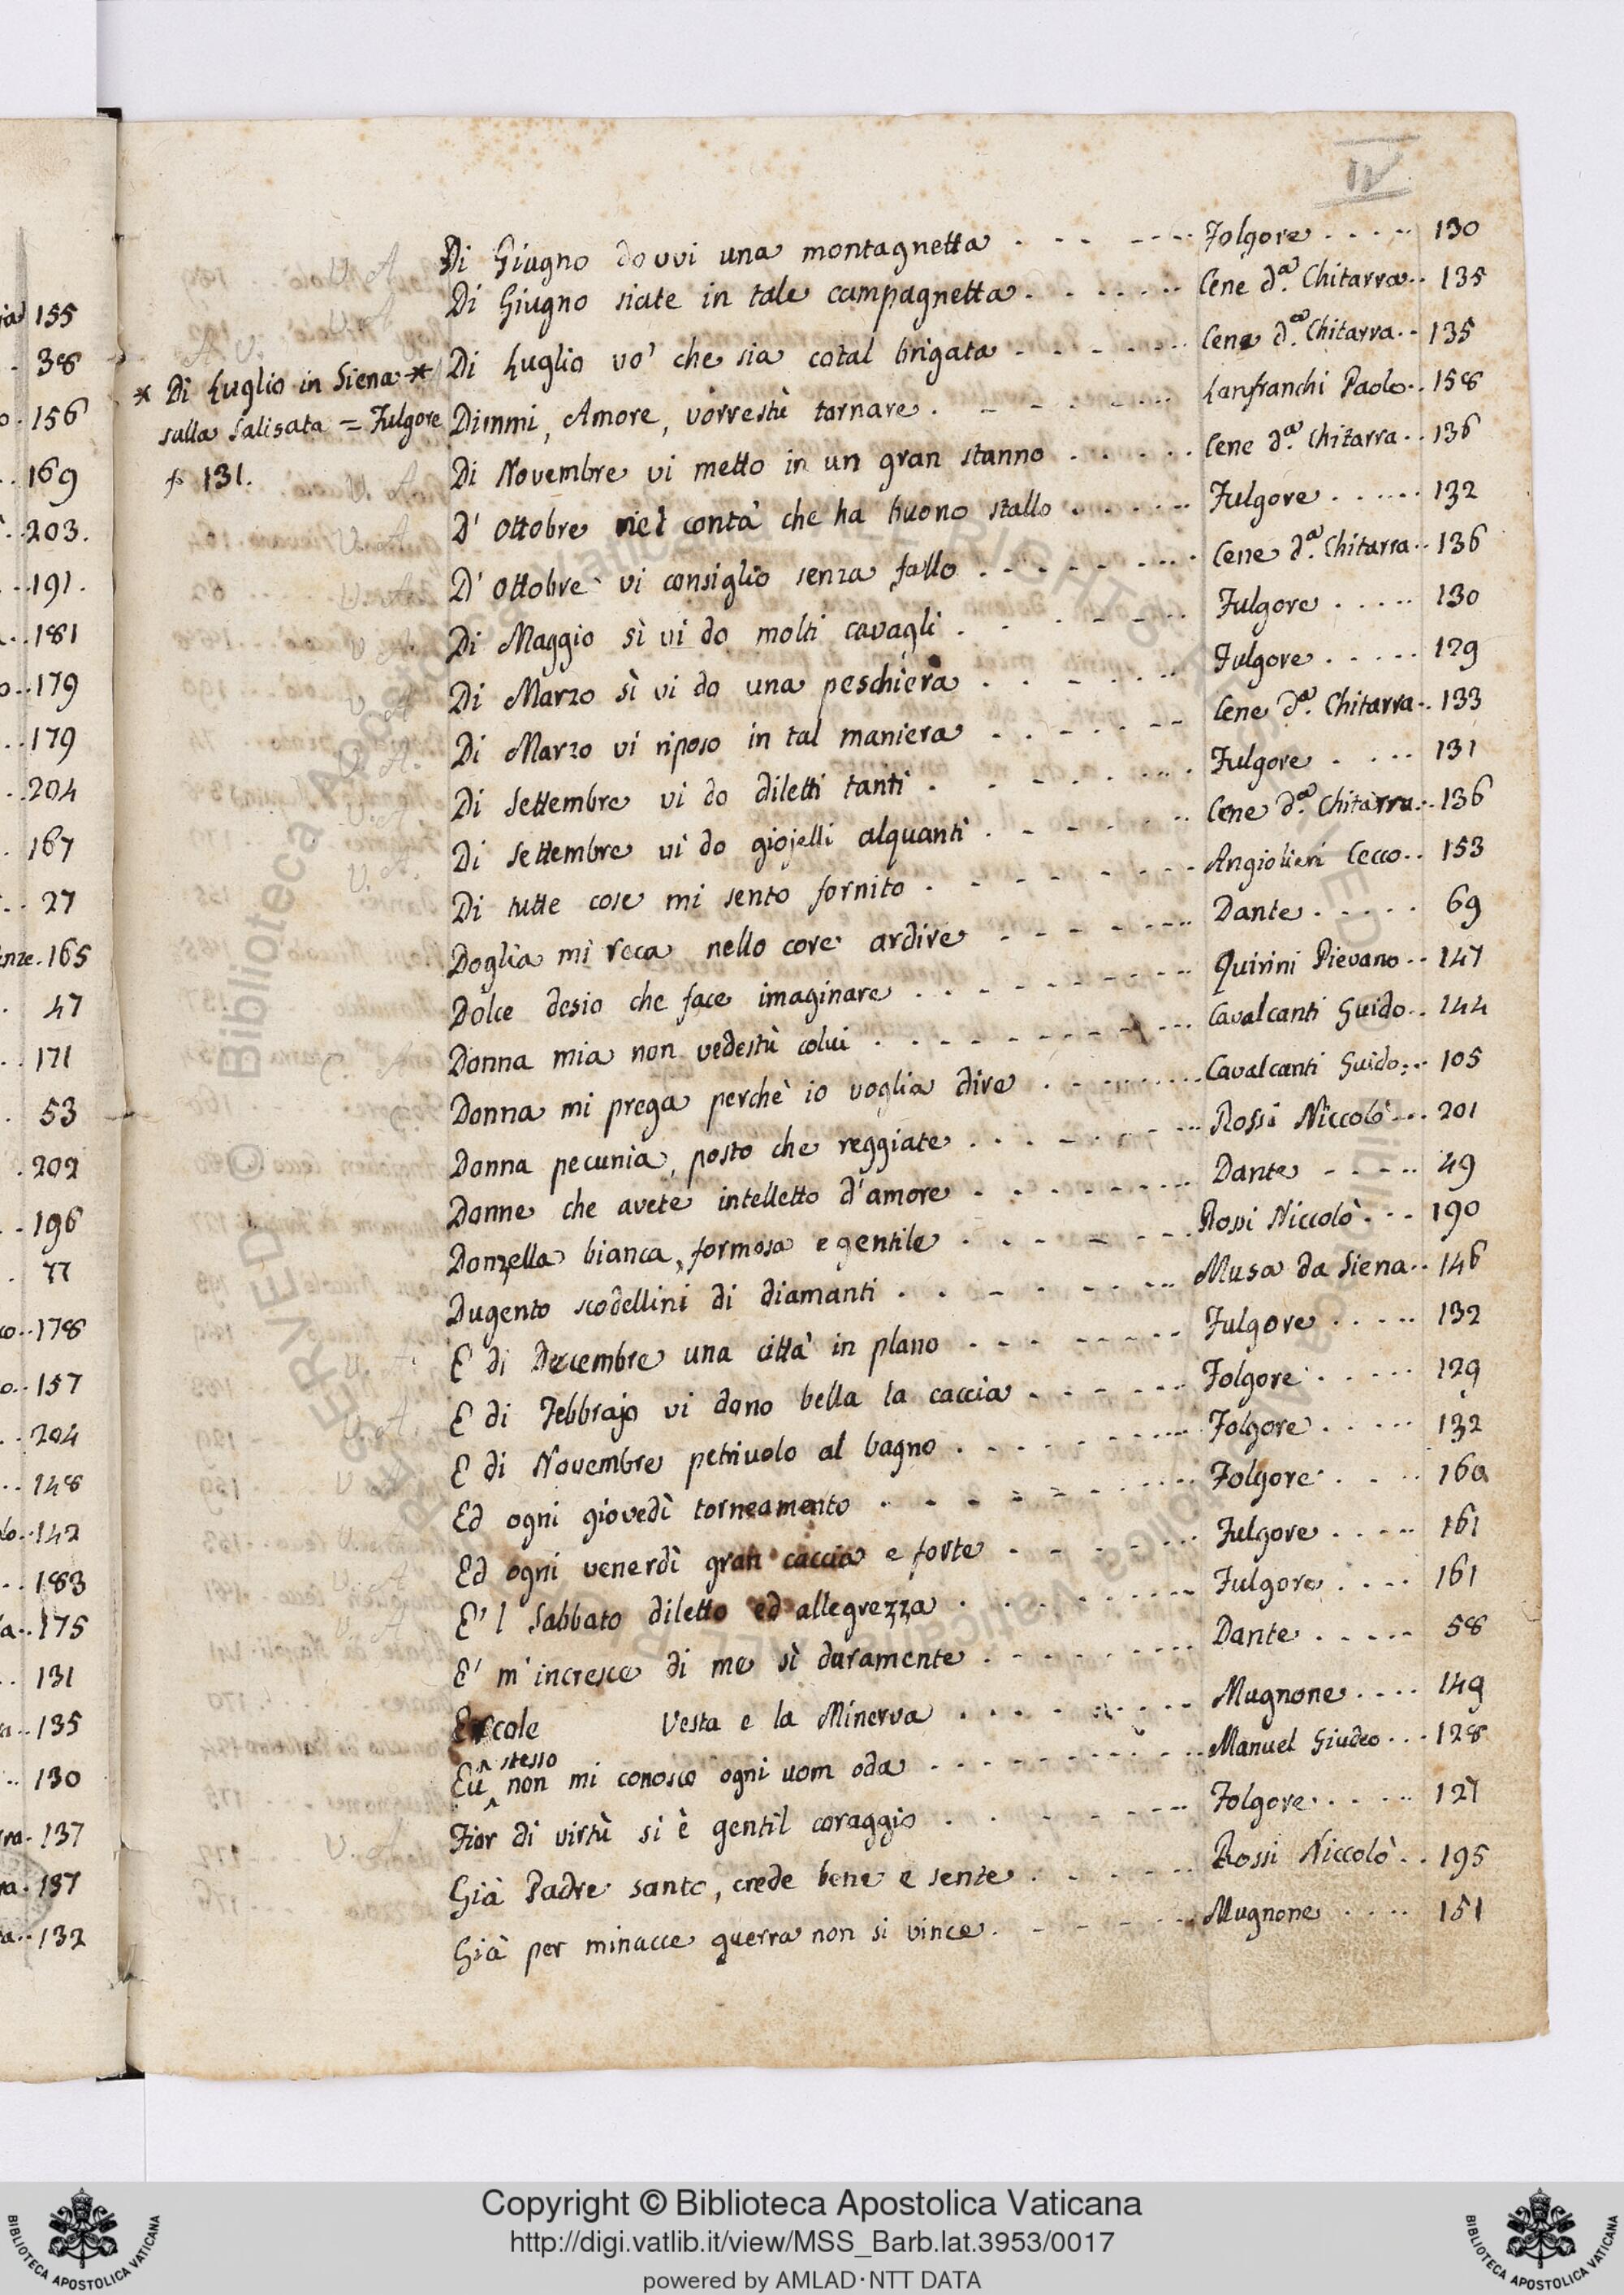 IV
Di Giugno dovvi una montagnetta . - - - - - - Folgore . . . . . 130
Di Giugno siate in tale campagnetta . - - . . . . Cene d.ª Chitarra . . 135
Di Luglio vo' che sia cotal brigata . - - - - - . Cene d.ª Chitarra . - 135
* Di Luglio in Siena *
sulla salisata = Fulgore
f 131.
Dimmi, Amore, vorrestù tornare . - - - - . . . Lanfranchi Paolo . . 158
Di Novembre vi metto in un gran stanno . . . . . . Cene d.ª Chitarra . . 136
D' Ottobre nel contà che ha buono stallo . . . . . . Fulgore . . . . . . 132
D' Ottobre vi consiglio senza fallo . - - - - - . . . Cene d.ª Chitarra . . 136
Di Maggio sì vi do molti cavagli . - - - - - . Fulgore . . . . . 130
Di Marzo sì vi do una peschiera . . - . . . Fulgore . . . . . 129
Di Marzo vi riposo in tal maniera . . - . . - - Cene d.ª Chitarra . . 133
Di Settembre vi do diletti tanti . . - . . . . . Fulgore . . . . 131
Di Settembre vi do giojelli alquanti . - - - - . . Cene d.ª Chitarra . . 136
Di tutte cose mi sento fornito . - - - - - - . . Angiolieri Cecco . . 153
Doglia mi reca nello core ardire . - - - - . . . Dante . . . . . 69
Dolce desio che face imaginare . . - - - - - - . . Quirini Pievano . . 147
Donna mia non vedestù colui . . - - - - - - . . . Cavalcanti Guido . . 144
Donna mi prega perchè io voglia dire . - - . . . . . Cavalcanti Guido . . 105
Donna pecunia, posto che reggiate . . . - . . - . . . Rossi Niccolò . . . 201
Donne che avete intelletto d'amore . - - - - - . . . Dante - - - - . . 49
Donzella bianca, formosa e gentile . . - . - - . Rossi Niccolò . - - 190
Dugento scodellini di diamanti . . - . - - - . . . Musa da Siena . . 146
E di Decembre una città in plano . - - - - - - - - Fulgore . . . . . 132
E di Febbrajo vi dono bella la caccia . - - - - . . . Folgore . . . . . 129
E di Novembre petriuolo al bagno . - - - - - - . . . Folgore . . . . . 132
Ed ogni giovedì torneamento . - . - - - . . . . . Folgore . . - . 160
Ed ogni venerdì gran caccia e forte . - - - - . . . Fulgore . . . . . 161
E' l Sabbato diletto ed allegrezza . . - . . . . . . . Fulgore . . . . 161
E' m'incresce di me sì duramente . - - - - - . . . . Dante . . . . . 58
Ercole Vesta e la Minerva . . . . - . . . - - . Mugnone . . . . 149
Eu stesso non mi conosco ogni uom oda . - - - - - - . . . . Manuel Giudeo . . . 128
Fior di virtù si è gentil coraggio . . - - - - - . Folgore . . . . . 127
Già Padre santo, crede bene e sente . . - . - . . Rossi Niccolò . . 195
Già per minacce guerra non si vince . - - - - - . Mugnone . . . . 151
155
38
156
169
203.
191.
181
179
179
204
167
27
165
47
171
53
202
196
77
178
157
204
148
142
183
175
131
135
130
137
137
132
Copyright © Biblioteca Apostolica Vaticana
http://digi.vatlib.it/view/MSS_Barb.lat.3953/0017
powered by AMLAD·NTT DATA
BIBLIOTECA APOSTOLICA VATICANA
BIBLIOTECA APOSTOLICA VATICANA